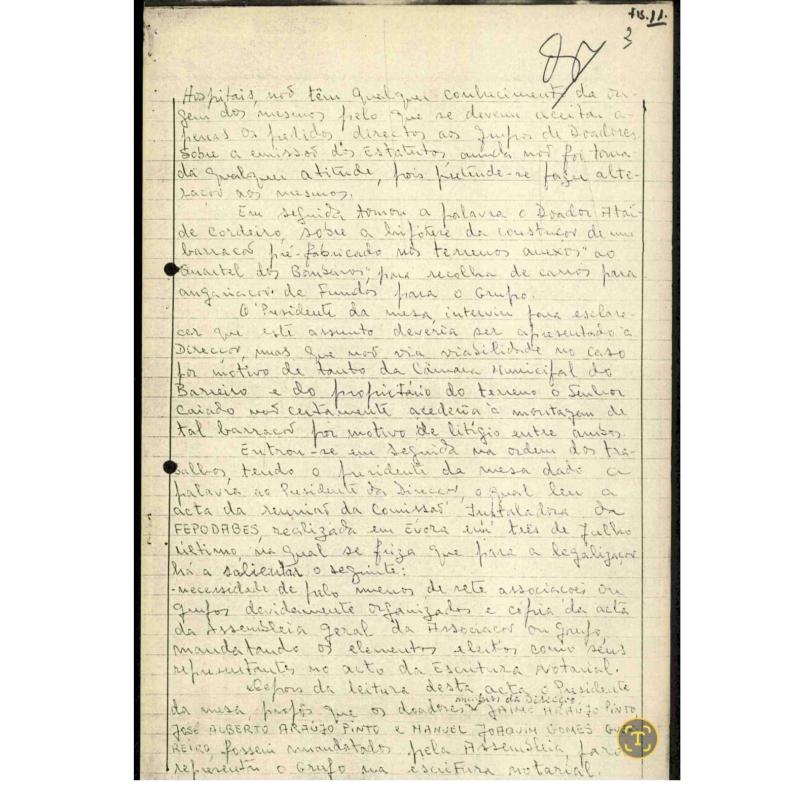 fls. 11.
3
Hospitais, não têm qualquer conhecimento da ori-
gem dos mesmos pelo que se devem aceitar a-
penas os pedidos directos aos Grupos de Doadores.
Sobre a emissão dos Estatutos ainda não foi toma-
da qualquer atitude, pois pretende-se fazer alte-
ração aos mesmos.
Em seguida tomou a palavra o Doador Ataí-
de Cordeiro, sobre a hipótese da construção de um
barracão pré-fabricado nos terrenos anexos ao
"Quartel dos Bombeiros", para recolha de carros para
angariação de Fundos para o Grupo.
O Presidente da mesa, interviu para esclare-
cer que este assunto deveria ser apresentado à
Direcção, mas que não via viabilidade no caso
por motivo de tanto da Câmara Municipal do
Barreiro e do proprietário do terreno o Senhor
Caiado não certamente acederia à montagem de
tal barracão por motivo de litígio entre ambos.
Entrou-se em seguida na ordem dos tra-
balhos, tendo o presidente da mesa dado a
palavra ao Presidente da Direcção, o qual leu a
acta da reunião da Comissão Instaladora da
FEPODABES, realizada em Évora em três de Julho
último, na qual se friza que para a legalização
há a salientar o seguinte:
-necessidade de pelo menos de sete associações ou
grupos devidamente organizados e cópia da acta
da Assembleia Geral da Associação ou Grupo,
mandatando os elementos eleitos como seus
representantes no acto da Escritura Notarial.
Depois da leitura desta acta o Presidente
membros da Direcção
da mesa, propôs que os doadores JAIME ARAÚJO PINTO,
JOSÉ ALBERTO ARAÚJO PINTO e MANUEL JOAQUIM GOMES GUER-
REIRO, fossem mandatados pela Assembleia, para
representar o Grupo na escritura notarial.